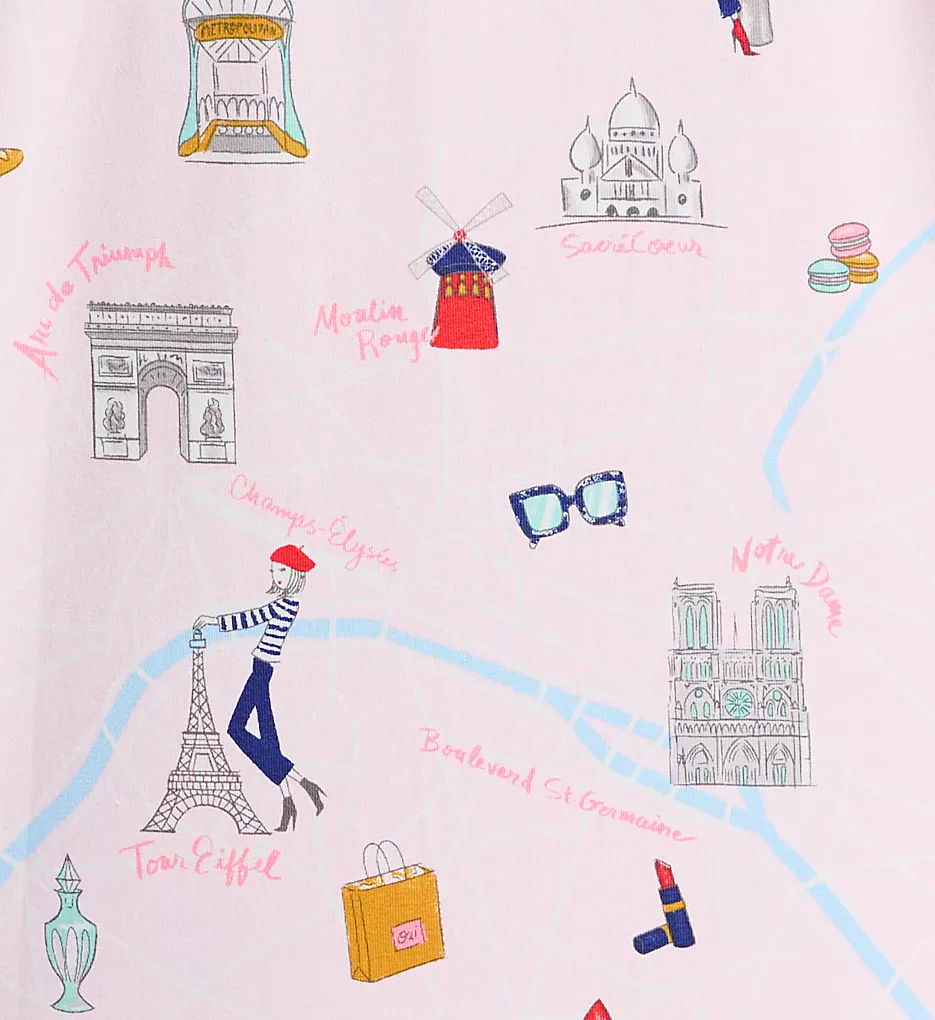 METROPOLITAN
SacréCoeur
Arc de Triumph
Moulin
Rouge
Champs-Élysées
Notre Dame
Boulevard St Germaine
Tour Eiffel
oui